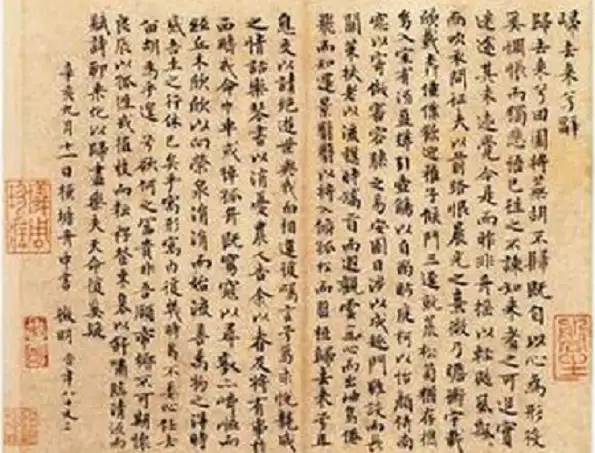 歸去來兮辭
歸去來兮田園將蕪胡不歸既自以心為形役
奚惆悵而獨悲悟已往之不諫知來者之可追實
迷途其未遠覺今是而昨非舟搖搖以輕颺風飄飄
而吹衣問征夫以前路恨晨光之熹微乃瞻衡宇載
欣載奔僮僕歡迎稚子候門三逕就荒松菊猶存攜
幼入室有酒盈罇引壺觴以自酌眄庭柯以怡顏倚南
窗以寄傲審容膝之易安園日涉以成趣門雖設而常
關策扶老以流憩時矯首而遐觀雲無心而出岫鳥倦
飛而知還景翳翳以將入撫孤松而盤桓歸去來兮請
息交以絕遊世與我而相違復駕言兮焉求悅親戚
之情話樂琴書以消憂農人告余以春及將有事於
西疇或命巾車或棹孤舟既窈窕以尋壑亦崎嶇而
經丘木欣欣以向榮泉涓涓而始流善萬物之得時
感吾生之行休已矣乎寓形宇內復幾時曷不委心任去
留胡為乎遑遑兮欲何之富貴非吾願帝鄉不可期懷
良辰以孤往或植杖而耘耔登東皋以舒嘯臨清流而
賦詩聊乘化以歸盡樂夫天命復奚疑
辛亥九月十一日橫塘舟中書 徵明 時年八十又二